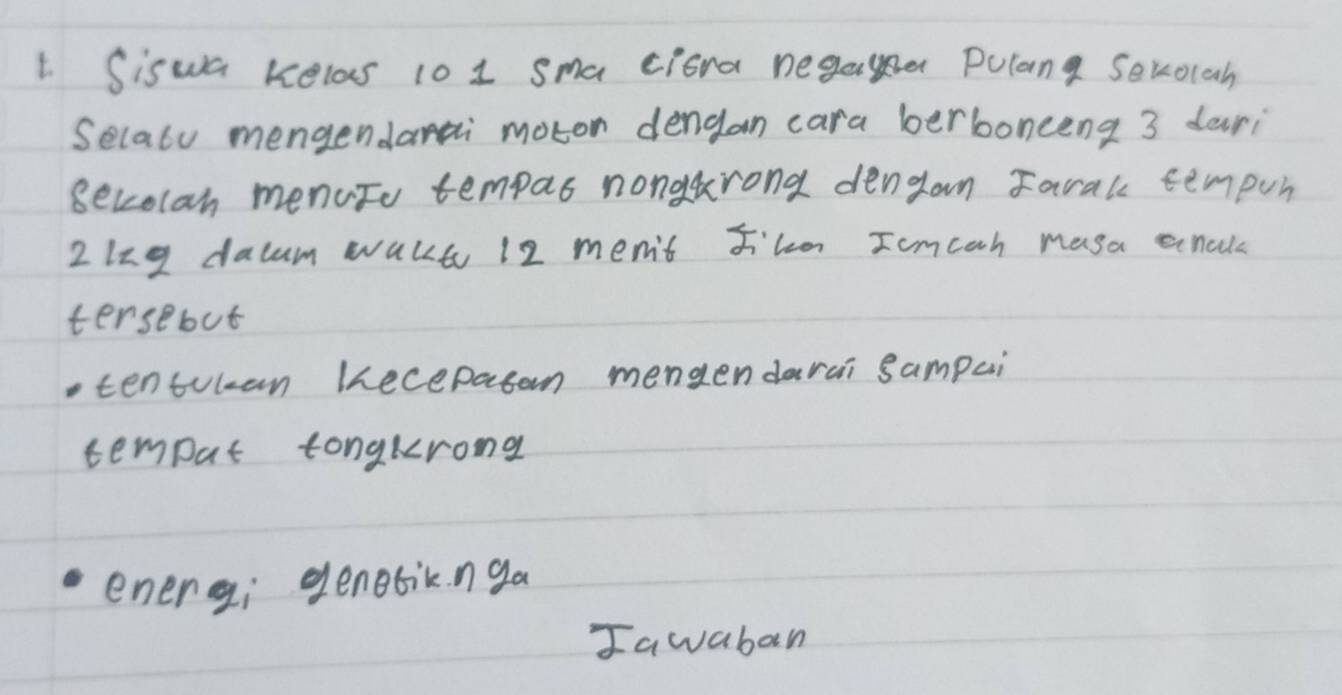 1. Siswa Kelas 10 1 Sma citra negara Pulang Sekolah
Selalu mengendarai motor dengan cara berbonceng 3 dari
Sekolah menuju tempat nongkrong dengan Jarak tempuh
2 kg dalam waktu 12 menit Jika Jumlah masa anak
tersebut
• tentukan Kecepatan mengendarai sampai
tempat tongkrong
• energi genetik.nga
Jawaban